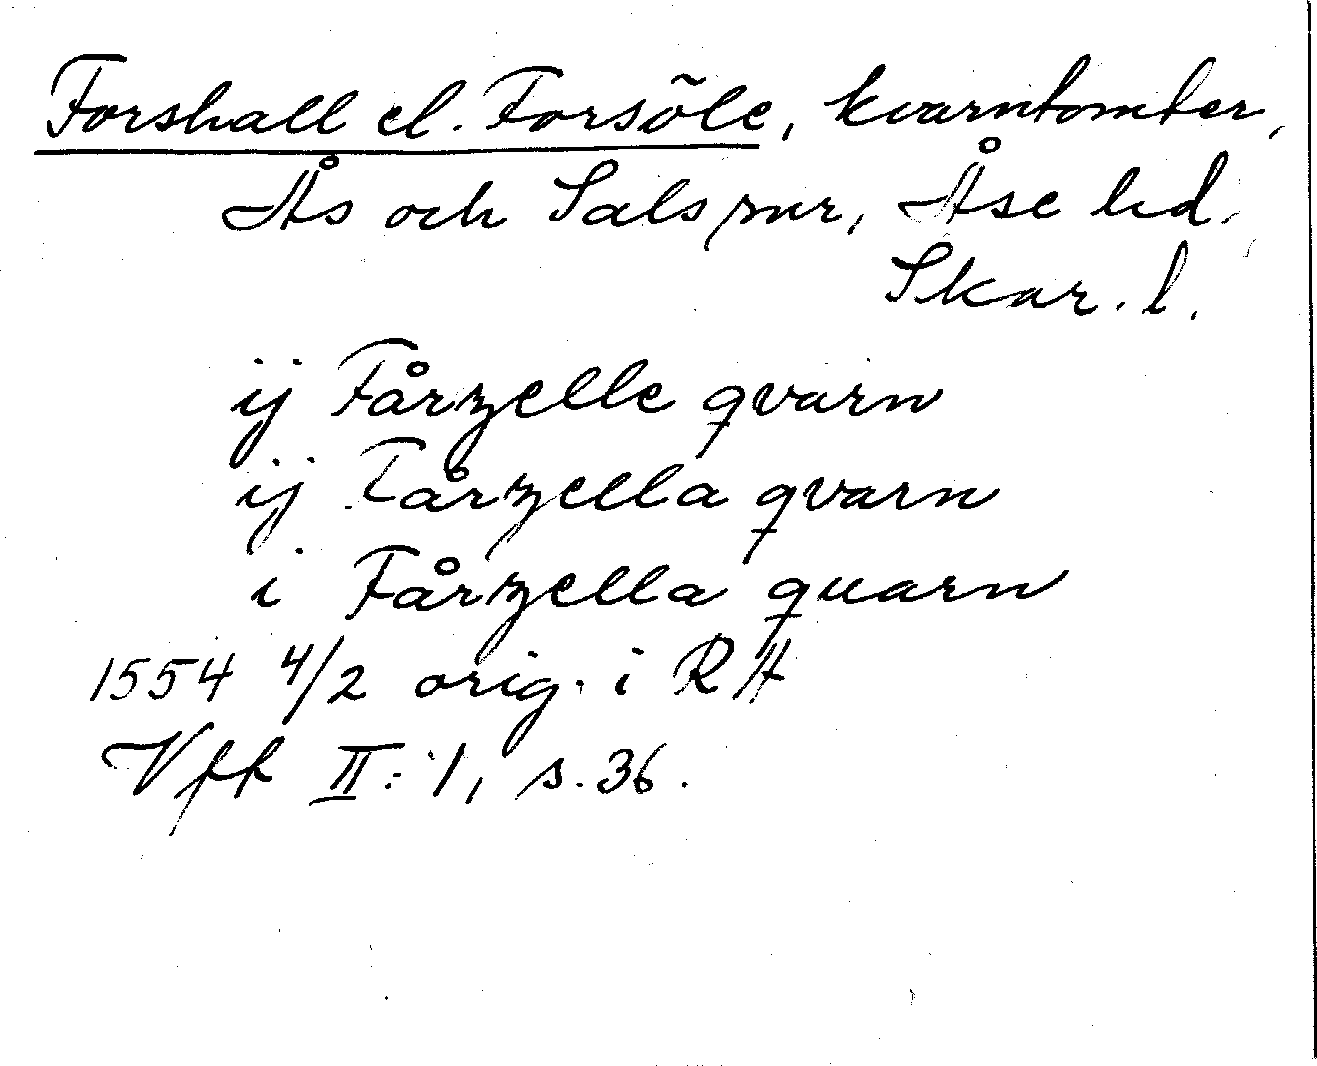 Forshall el. Forsöle, kvarntomter,
Ås och Sals snr, Åse hd,
Skar. l.
ij Fårzelle qvarn
ij Fårzella qvarn
i Fårzella quarn
1554 4/2 orig. i RA
Vff II: 1, s. 36.